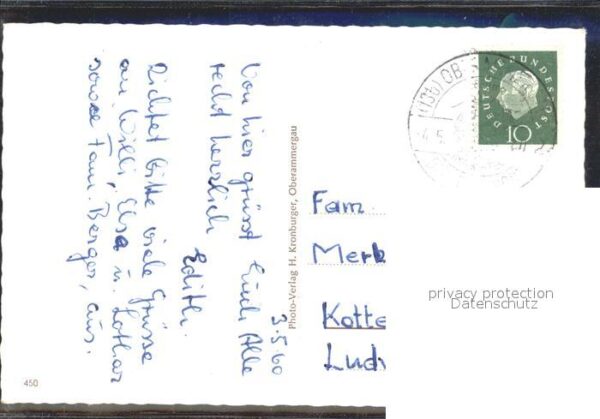 3.5.60
Von hier grüsst Euch Alle
recht herzlich
Edith.
Richtet bitte viele Grüsse
an Willi, Elsa u. Lothar
sowie Fam. Berger, aus.
Photo-Verlag H. Kronburger, Oberammergau
450
DEUTSCHE BUNDESPOST
10
(13b) OB
Fam
Merk
Kotte
Ludw
privacy protection
Datenschutz